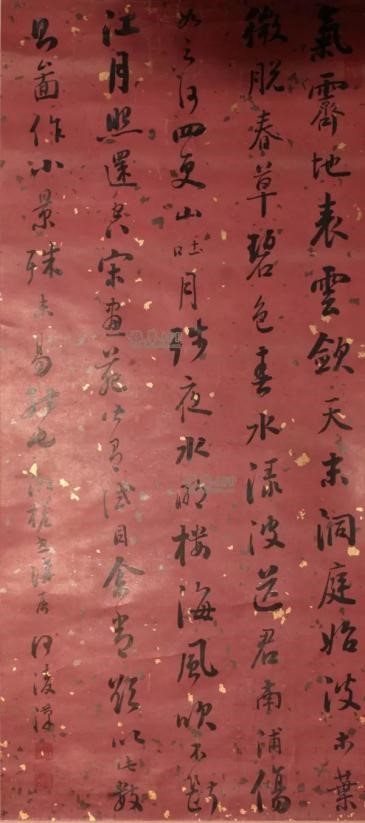 氣霽地表雲歛天末洞庭始波木葉
微脱春草碧色春水渌波送君南浦傷
如之何四更山吐月殘夜水明樓海風吹不斷
江月照還空宋畫苑試目余嘗欲以此數
圖作小景殊未易也何凌漢